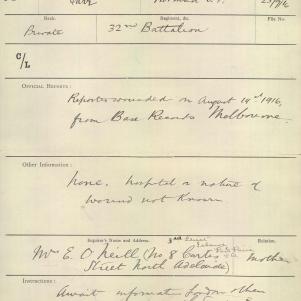 Rank.
Regiment, &c.
File No
Private
32nd Battalion
C/L
OFFICIAL REPORTS:
Reported wounded on August 19th 1916,
from Base Records Melbourne.
Other Information:
None. Hospital or nature of
wound not known
Inquirer's Name and Address.
Relation.
Mrs E. O'Neill (No 8 Curtis
Street North Adelaide)
Mother
Instructions:
Await information London then